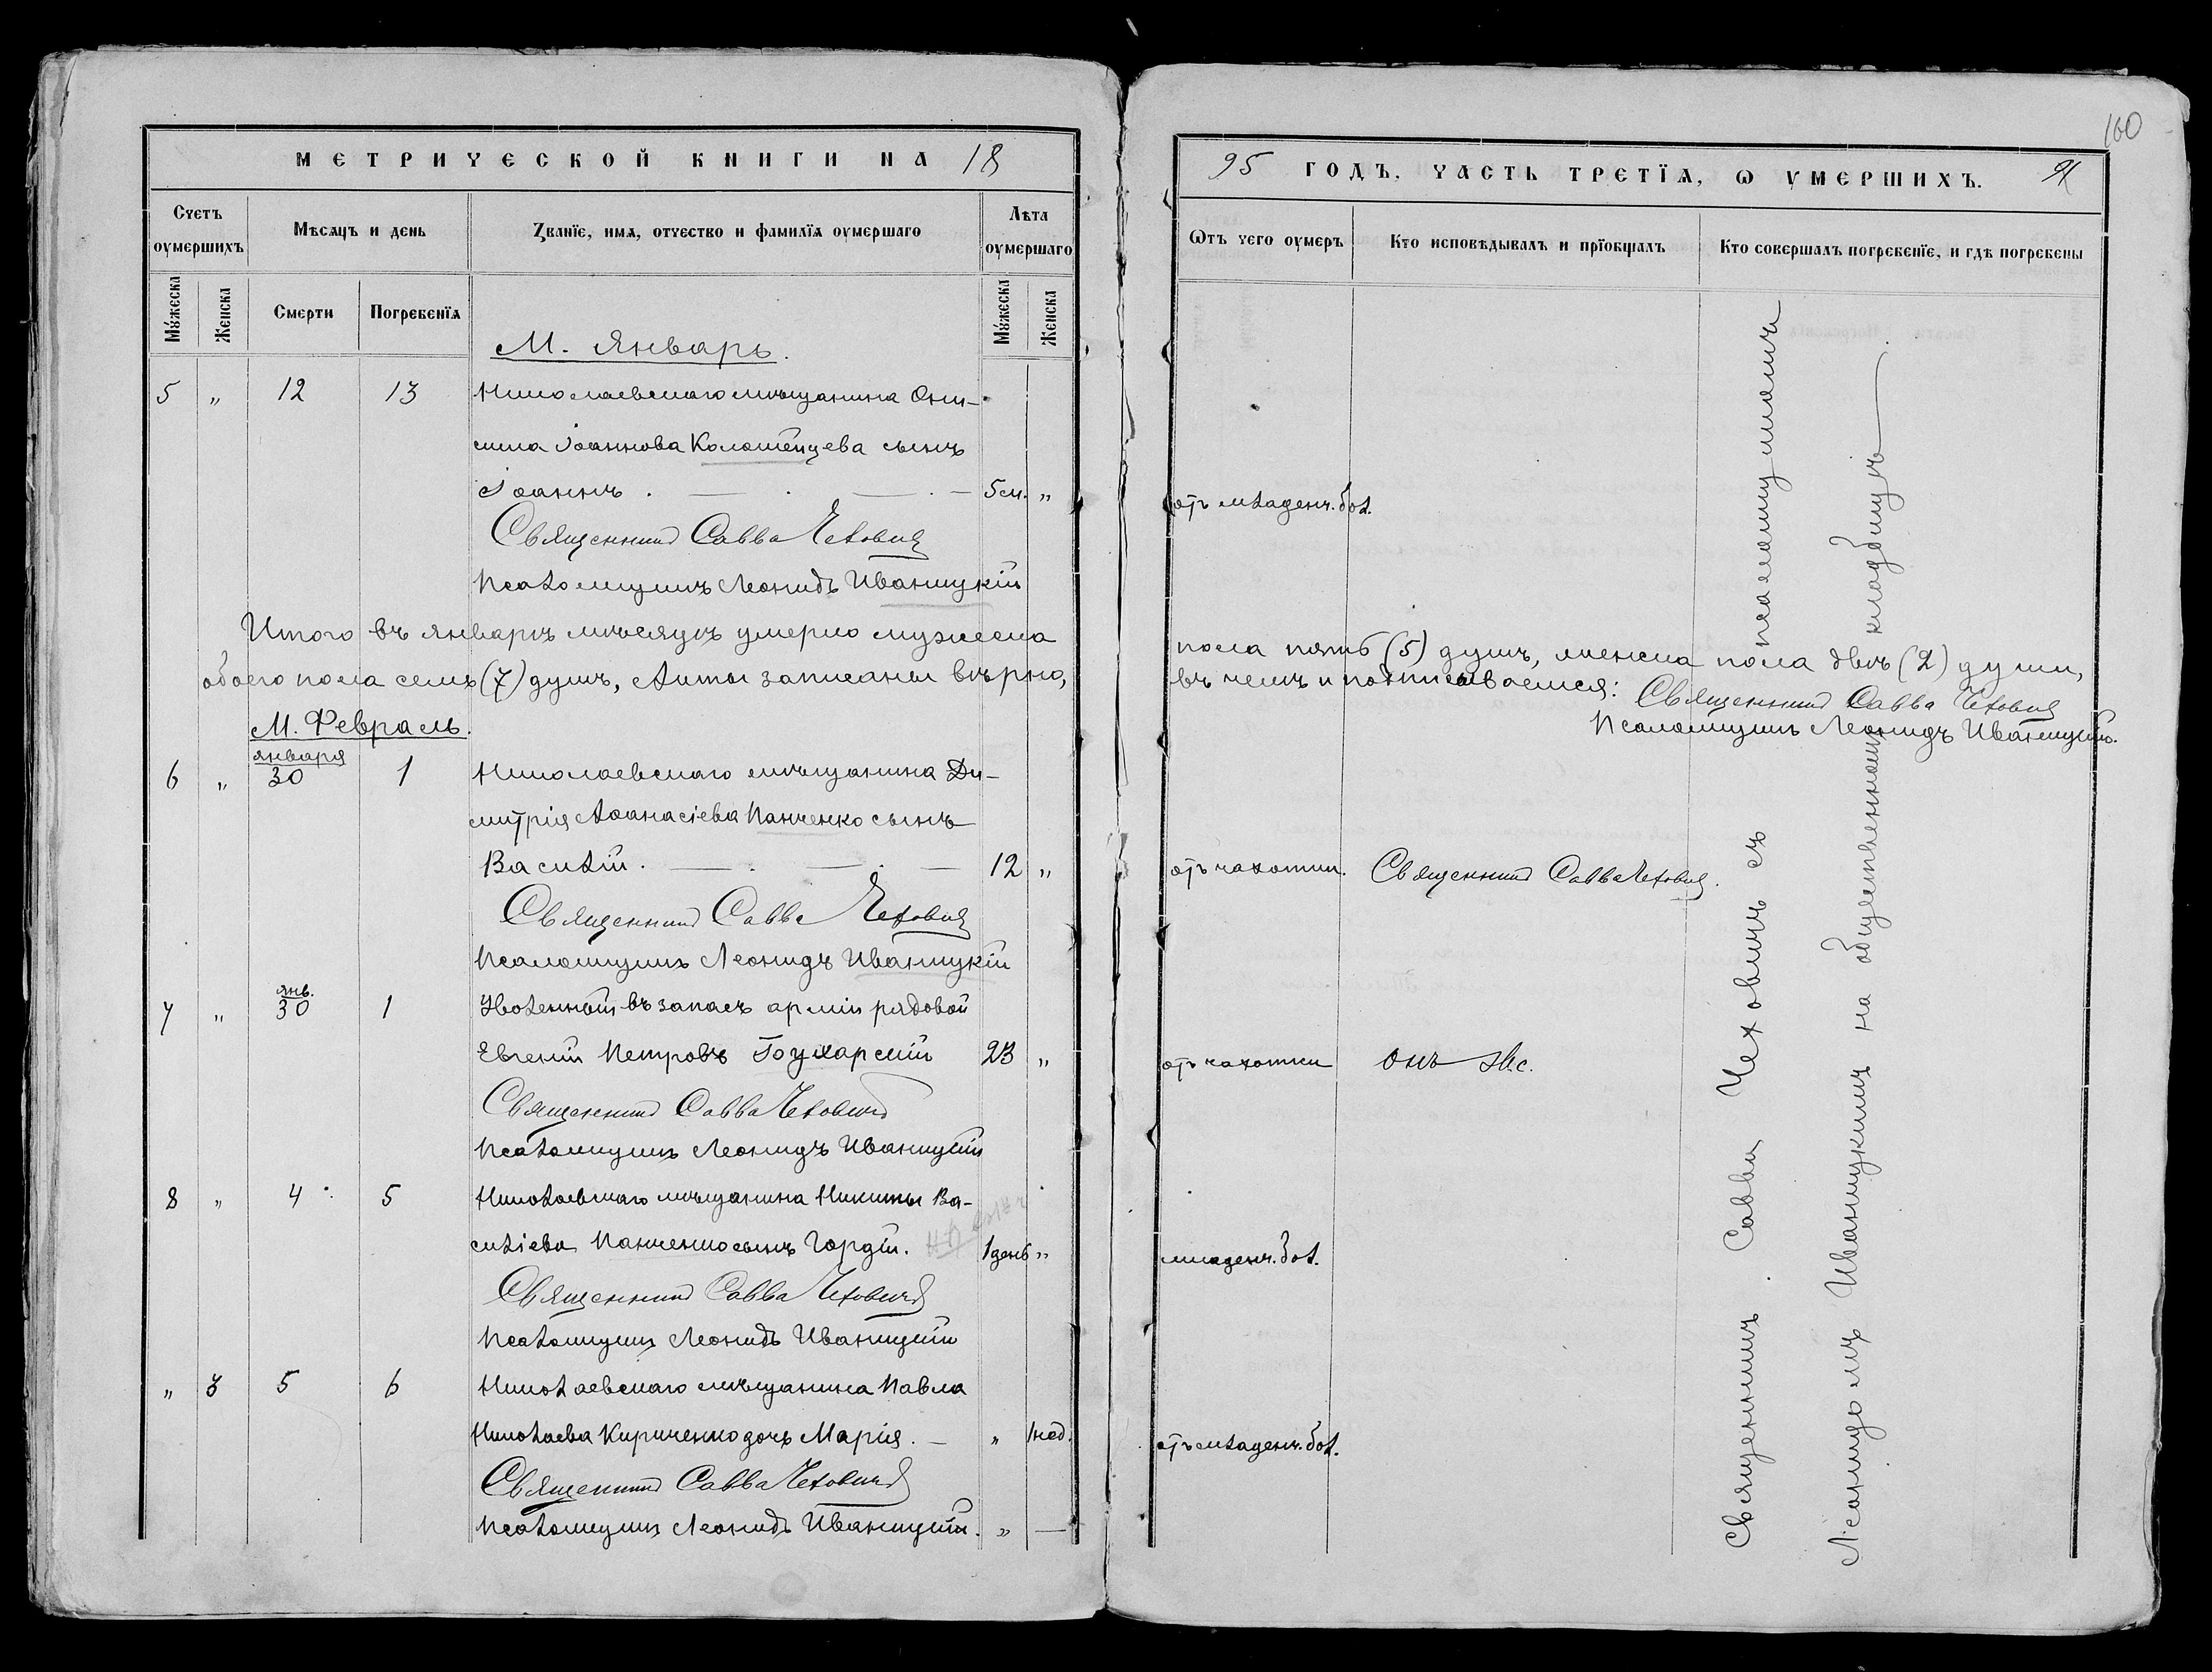 МЕТРИЧЕСКОЙ КНИГИ НА 18
Счетъ оумершихъ
Мѣсяцъ и день
Званїе, имя, отчество и фамилїя оумершаго
Лѣта оумершаго
Мужеска
Женска
Смерти
Погребенїя
Мужеска
Женска
М. Январь.
5 " 12 13 Николаевскаго мѣщанина Они-
сима Іоаннова Коломѣйцева сынъ
Іоаннъ . — . — . — 5 м. "
Священникъ Савва Чеховичъ
Псаломщикъ Леонидъ Иваницкій
Итого въ январѣ мѣсяцѣ умерло мужеска
обоего пола семь (7) душъ, Акты записаны вѣрно,
М. Февраль.
января
6 " 30 1 Николаевскаго мѣщанина Ди-
митрія Аѳанасіева Панченко сынъ
Василій . — . — . — 12 "
Священникъ Савва Чеховичъ
Псаломщикъ Леонидъ Иваницкій
янв.
7 " 30 1 Уволенный въ запасъ арміи рядовой
Евгеній Петровъ 23 "
Священникъ Савва Чеховичъ
Псаломщикъ Леонидъ Иваницкій
8 " 4 5 Николаевскаго мѣщанина Никиты Ва-
силіева Панченко сынъ Гордій. 1 день "
Священникъ Савва Чеховичъ
Псаломщикъ Леонидъ Иваницкій
" 3 5 6 Николаевскаго мѣщанина Павла
Николаева Кириченко дочь Марія. — " 1 нед.
Священникъ Савва Чеховичъ
Псаломщикъ Леонидъ Иваницкій. " —
160
95 ГОДЪ, ЧАСТЬ ТРЕТЇЯ, Ѡ УМЕРШИХЪ. 91
Ѿтъ чего оумеръ
Кто исповѣдывалъ и прїобщалъ
Кто совершалъ погребенїе, и гдѣ погребены
отъ младенч. бол.
пола пять (5) душъ, женска пола двѣ (2) души,
въ чемъ и подписываемся: Священникъ Савва Чеховичъ
Псаломщикъ Леонидъ Иваницкій.
отъ чахотки. Священникъ Савва Чеховичъ.
отъ чахотки онъ же.
младенч. бол.
отъ младенч. бол.
Священникъ Савва Чеховичъ съ псаломщикомъ
Леонидомъ Иваницкимъ на общественномъ кладбищѣ